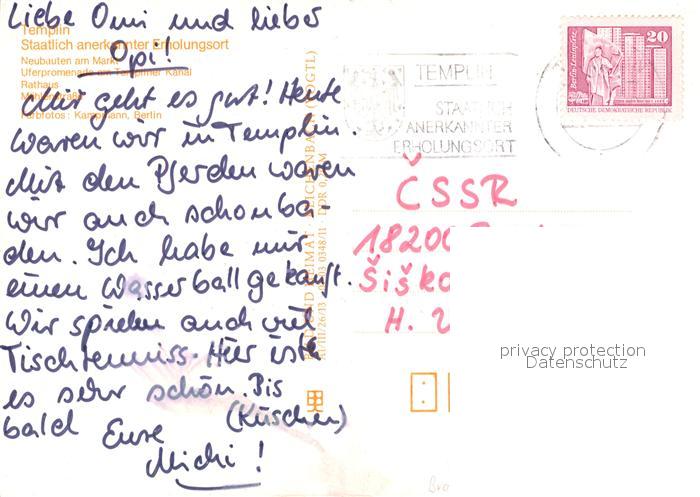 Liebe Omi und lieber
Opi!
Mir geht es gut! Heute
waren wir in Templin.
Mit den Pferden waren
wir auch schon ba-
den. Ich habe mir
einen Wasserball gekauft.
Wir spielen auch viel
Tischtennis. Hier ist
es sehr schön. Bis
bald Eure (Küschen)
Michi!
Templin
Staatlich anerkannter Erholungsort
Neubauten am Markt
Uferpromenade am Templiner Kanal
Rathaus
Farbfotos: Kampmann, Berlin
BILD UND HEIMAT REICHENBACH (VOGTL)
A1/III/26/13 0348/11 DDR
TEMPLIN
STAATLICH
ANERKANNTER
ERHOLUNGSORT
Berlin-Leninplatz
20
DEUTSCHE DEMOKRATISCHE REPUBLIK
ČSSR
18200
H.
privacy protection
Datenschutz